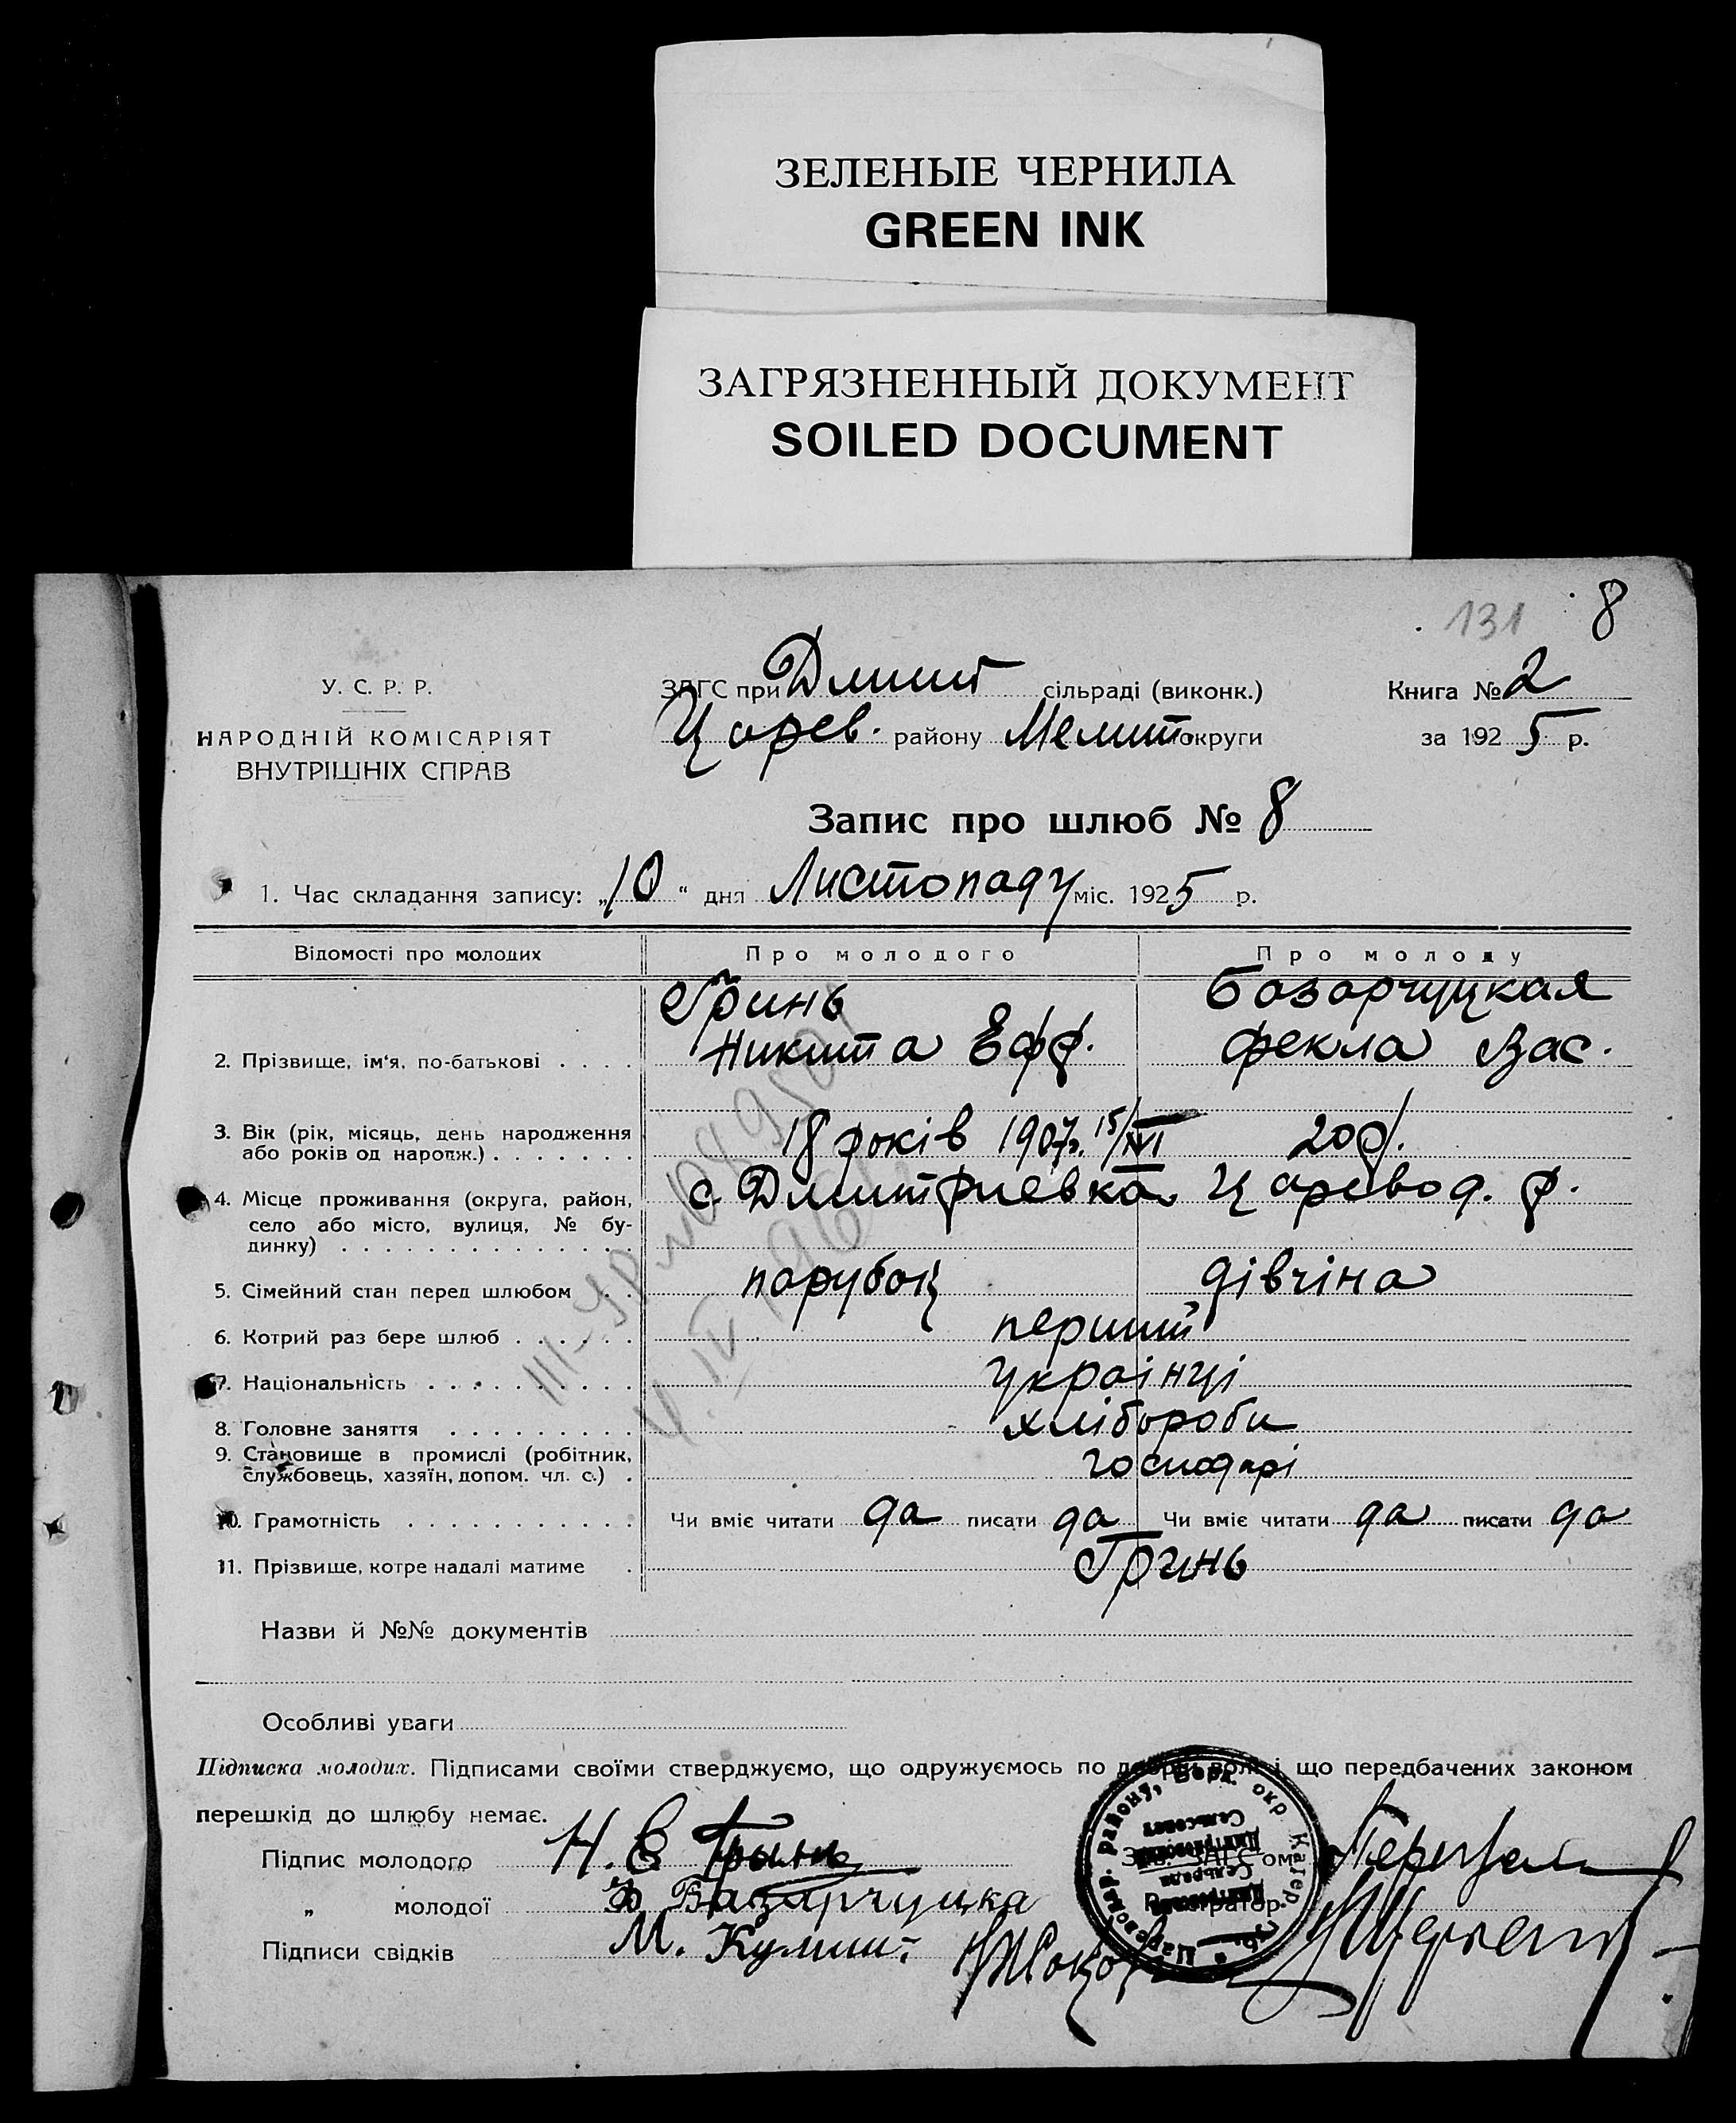 ЗЕЛЕНЫЕ ЧЕРНИЛА
GREEN INK
ЗАГРЯЗНЕННЫЙ ДОКУМЕНТ
SOILED DOCUMENT
131 8
У. С. Р. Р.
НАРОДНІЙ КОМІСАРІЯТ
ВНУТРІШНІХ СПРАВ
ЗАГС при Дмит сільраді (виконк.)
Царев. району Мелит. округи
Книга № 2
за 1925 р.
Запис про шлюб № 8
1. Час складання запису: „10“ дня Листопаду міс. 1925 р.
Відомості про молодих Про молодого Про молоду
Гринь Базарчуцкая
2. Прізвище, ім'я, по-батькові Никита Ефф. Фекла Вас.
3. Вік (рік, місяць, день народження 18 років 1907р. 15/ 20 р.
або років од народж.)
4. Місце проживання (округа, район, с Дмитриевка Царевод. р.
село або місто, вулиця, № бу-
динку)
5. Сімейний стан перед шлюбом парубок дівчіна
6. Котрий раз бере шлюб перший
7. Національність українці
8. Головне заняття хлібороби
9. Становище в промислі (робітник, господарі
службовець, хазяїн, допом. чл. с.)
10. Грамотність Чи вміє читати да писати да Чи вміє читати да писати да
11. Прізвище, котре надалі матиме Гринь
Назви й №№ документів
Особливі уваги
Підписка молодих. Підписами своїми стверджуємо, що одружуємось по добрій волі і що передбачених законом
перешкід до шлюбу немає.
Підпис молодого Н. Е Гринь
Зав. ЗАГС'ом
„ молодої Ф Базарчуцка
Реєстратор
Підписи свідків М. Кулиш